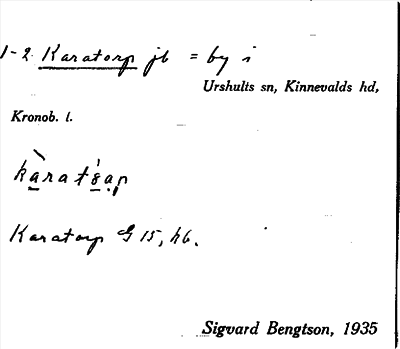 1-2 Karatorp jb = by i
Urshults sn, Kinnevalds hd,
Kronob. l.
Karatorp G 15, hb.
Sigvard Bengtson, 1935